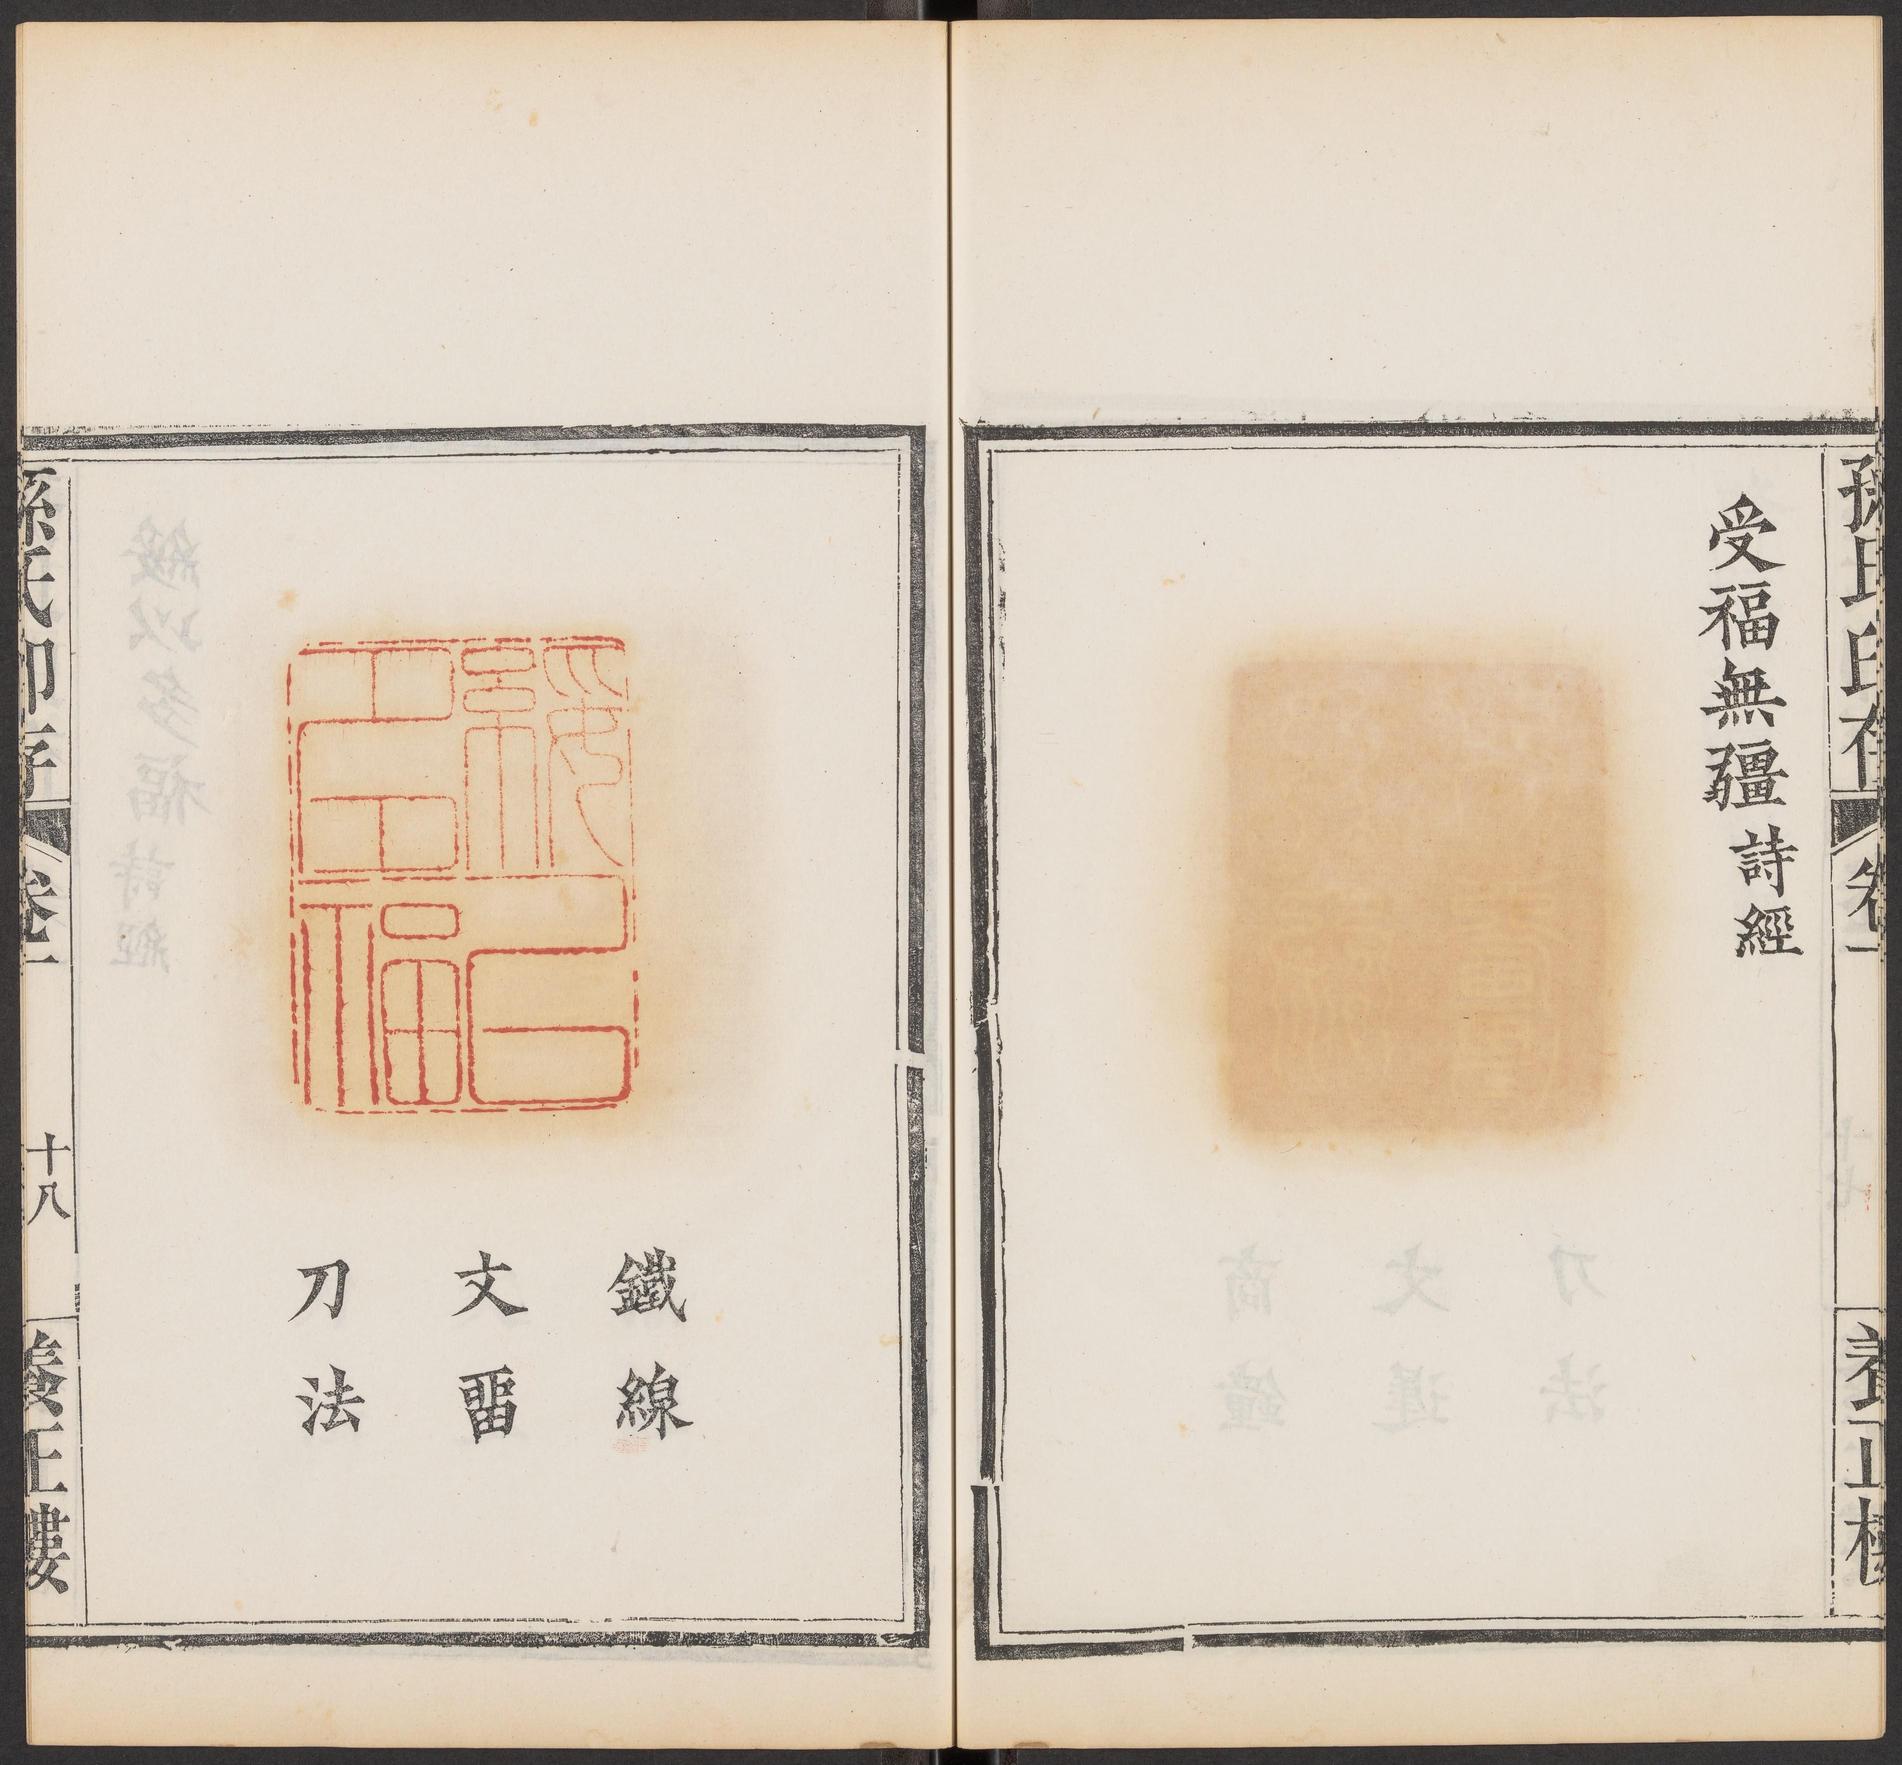 孫氏印存 卷一 養正樓
受福無疆 詩經
綏㠯多福
鐵線
文畱
刀法
孫氏印存 卷一 十八 養正樓